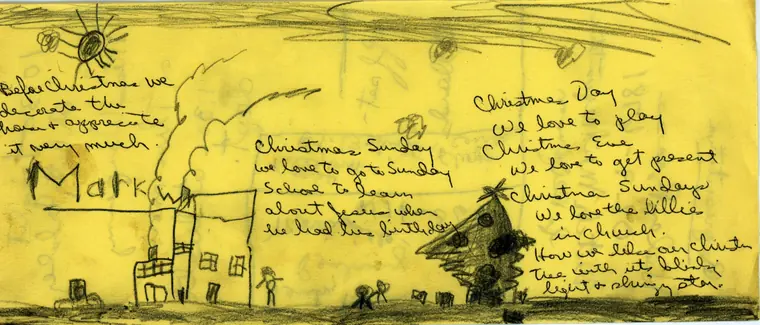 Before Christmas we
decorate the
house & appreciate
it very much.
Mark W
Christmas Sunday
we love to go to Sunday
School to learn
about Jesus when
he had his birthday
Christmas Day
We love to play
Christmas Eve
We love to get present
Christmas Sundays
We love the lillies
in church.
How we like our Christm
Tree with it blinky
light & shiny star.